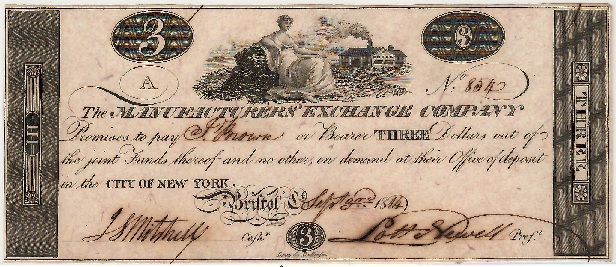 3
3
A
No. 854
The MANUFACTURERS' EXCHANGE COMPANY
Promises to pay or Bearer THREE Dollars out of
the joint Funds thereof and no other, on demand at their Office of deposit
in the CITY OF NEW YORK.
Bristol Ct. Sept 1814
Cashr. Prest.
3
III
THREE